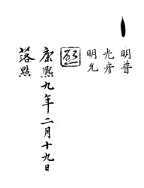 明普
光彦
明允
啓
康熙九年二月十九日
落點